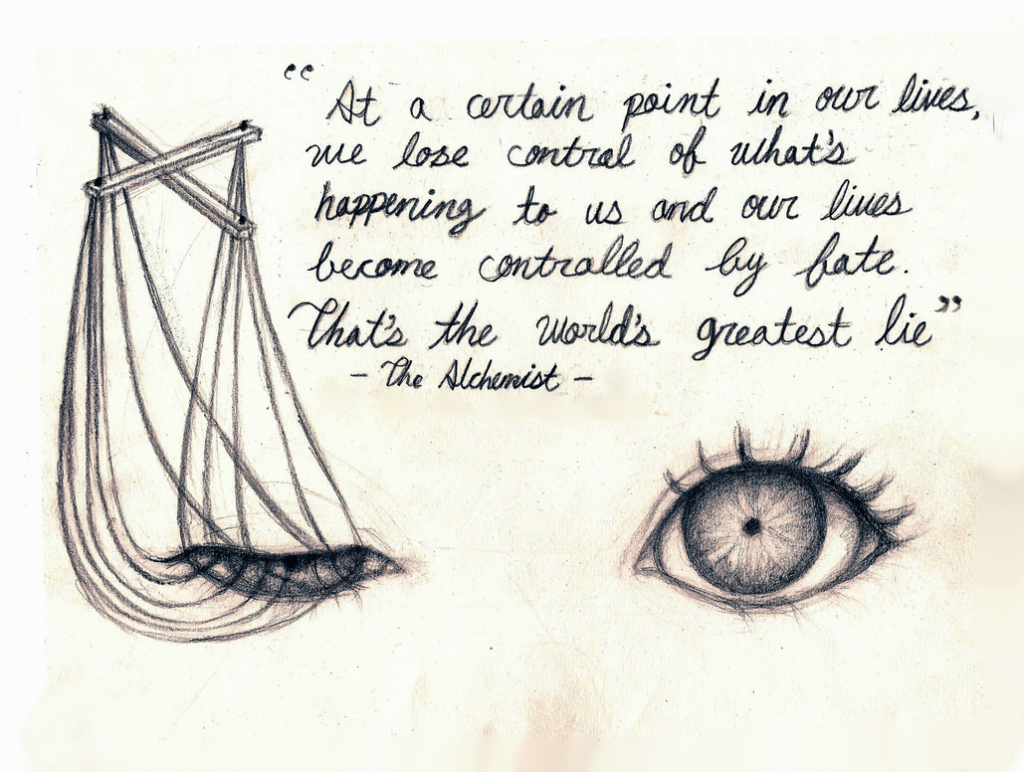 “ At a certain point in our lives,
we lose control of what's
happening to us and our lives
become controlled by fate.
That's the world's greatest lie”
- The Alchemist -